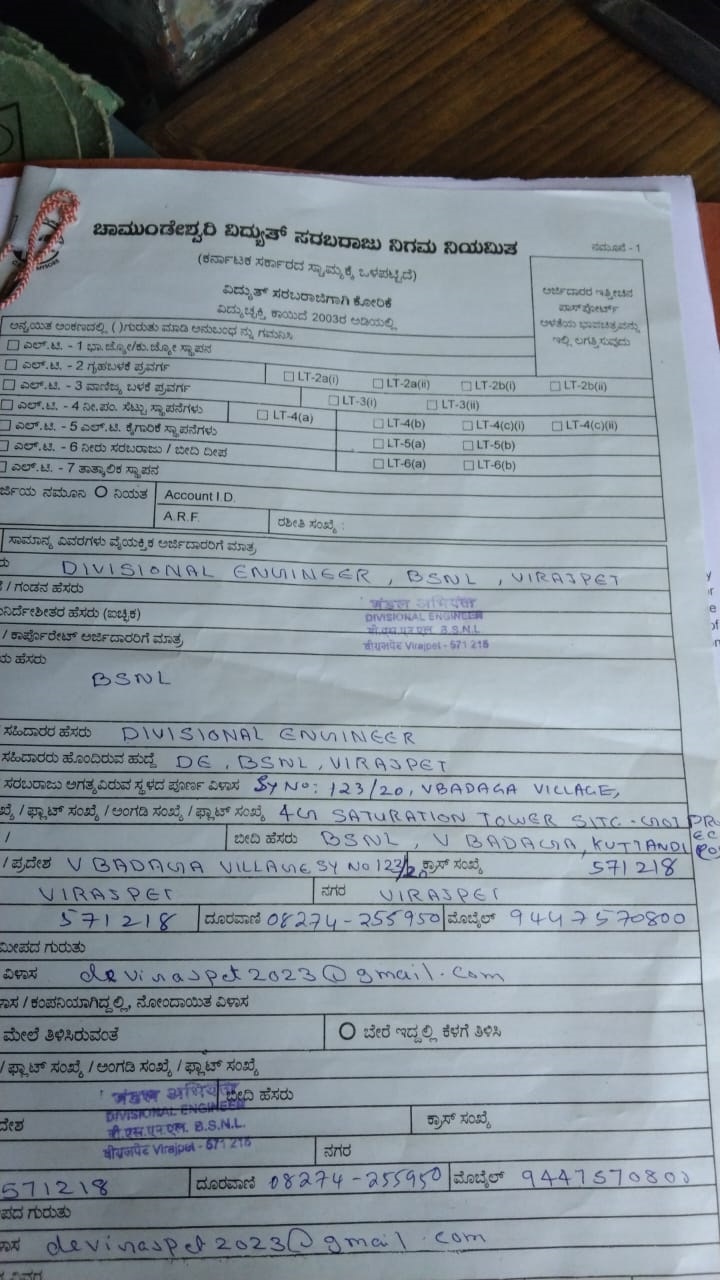 ಚಾಮುಂಡೇಶ್ವರಿ ವಿದ್ಯುತ್ ಸರಬರಾಜು ನಿಗಮ ನಿಯಮಿತ
ನಮೂನೆ - 1
(ಕರ್ನಾಟಕ ಸರ್ಕಾರದ ಸ್ವಾಮ್ಯಕ್ಕೆ ಒಳಪಟ್ಟಿದೆ)
ವಿದ್ಯುತ್ ಸರಬರಾಜಿಗಾಗಿ ಕೋರಿಕೆ
ವಿದ್ಯುಚ್ಛಕ್ತಿ ಕಾಯಿದೆ 2003ರ ಅಡಿಯಲ್ಲಿ
ಅರ್ಜಿದಾರರ ಇತ್ತೀಚಿನ
ಪಾಸ್‌ಪೋರ್ಟ್
ಅಳತೆಯ ಭಾವಚಿತ್ರವನ್ನು
ಇಲ್ಲಿ ಲಗತ್ತಿಸುವುದು
ಅನ್ವಯಿತ ಅಂಕಣದಲ್ಲಿ ( )ಗುರುತು ಮಾಡಿ ಅನುಬಂಧ ನ್ನು ಗಮನಿಸಿ
ಎಲ್.ಟಿ. - 1 ಭಾ.ಜ್ಯೋ/ಕು.ಜ್ಯೋ ಸ್ಥಾಪನ
ಎಲ್.ಟಿ. - 2 ಗೃಹಬಳಕೆ ಪ್ರವರ್ಗ LT-2a(i) LT-2a(ii) LT-2b(i) LT-2b(ii)
ಎಲ್.ಟಿ. - 3 ವಾಣಿಜ್ಯ ಬಳಕೆ ಪ್ರವರ್ಗ LT-3(i) LT-3(ii)
ಎಲ್.ಟಿ. - 4 ನೀ.ಪಂ. ಸೆಟ್ಟು ಸ್ಥಾಪನೆಗಳು LT-4(a) LT-4(b) LT-4(c)(i) LT-4(c)(ii)
ಎಲ್.ಟಿ. - 5 ಎಲ್.ಟಿ ಕೈಗಾರಿಕೆ ಸ್ಥಾಪನೆಗಳು LT-5(a) LT-5(b)
ಎಲ್.ಟಿ. - 6 ನೀರು ಸರಬರಾಜು / ಬೀದಿ ದೀಪ LT-6(a) LT-6(b)
ಎಲ್.ಟಿ. - 7 ತಾತ್ಕಾಲಿಕ ಸ್ಥಾಪನ
ರ್ಜಿಯ ನಮೂನ ನಿಯತ Account I.D.
A.R.F. ರಶೀತಿ ಸಂಖ್ಯೆ :
ಸಾಮಾನ್ಯ ವಿವರಗಳು ವೈಯಕ್ತಿಕ ಅರ್ಜಿದಾರರಿಗೆ ಮಾತ್ರ
ರು DIVISIONAL ENGINEER, BSNL, VIRAJPET
/ ಗಂಡನ ಹೆಸರು
ನಿರ್ದೇಶೀತರ ಹೆಸರು (ಐಚ್ಛಿಕ)
मंडल अभियंता
DIVISIONAL ENGINEER
बी.एस.एन.एल. B.S.N.L
वीराजपेट Virajpet - 571 218
/ ಕಾರ್ಪೊರೇಟ್ ಅರ್ಜಿದಾರರಿಗೆ ಮಾತ್ರ
ಯ ಹೆಸರು
BSNL
ಸಹಿದಾರರ ಹೆಸರು DIVISIONAL ENGINEER
ಸಹಿದಾರರು ಹೊಂದಿರುವ ಹುದ್ದೆ DE, BSNL, VIRAJPET
ಸರಬರಾಜು ಅಗತ್ಯವಿರುವ ಸ್ಥಳದ ಪೂರ್ಣ ವಿಳಾಸ SY NO: 123/20, VBADAGA VILLAGE,
ಖ್ಯೆ / ಫ್ಲಾಟ್ ಸಂಖ್ಯೆ / ಅಂಗಡಿ ಸಂಖ್ಯೆ / ಫ್ಲಾಟ್ ಸಂಖ್ಯೆ 4G SATURATION TOWER SITE - GOI PR
/ ಬೀದಿ ಹೆಸರು BSNL, V BADAGA, KUTTANDI
/ ಪ್ರದೇಶ V BADAGA VILLAGE SY NO 123/2 ಕ್ರಾಸ್ ಸಂಖ್ಯೆ 571218
VIRAJPET ನಗರ VIRAJPET
571218 ದೂರವಾಣಿ 08274-255950 ಮೊಬೈಲ್ 9447570800
ಮೀಪದ ಗುರುತು
ವಿಳಾಸ devirajpet2023@gmail.com
ಾಸ / ಕಂಪನಿಯಾಗಿದ್ದಲ್ಲಿ, ನೋಂದಾಯಿತ ವಿಳಾಸ
ಮೇಲೆ ತಿಳಿಸಿರುವಂತೆ ಬೇರೆ ಇದ್ದಲ್ಲಿ ಕೆಳಗೆ ತಿಳಿಸಿ
/ ಫ್ಲಾಟ್ ಸಂಖ್ಯೆ / ಅಂಗಡಿ ಸಂಖ್ಯೆ / ಫ್ಲಾಟ್ ಸಂಖ್ಯೆ
मंडल अभियंता ಬೀದಿ ಹೆಸರು
DIVISIONAL ENGINEER
ದೇಶ बी.एस.एन.एल. B.S.N.L. ಕ್ರಾಸ್ ಸಂಖ್ಯೆ
वीराजपेट Virajpet - 571 218 ನಗರ
571218 ದೂರವಾಣಿ 08274-255950 ಮೊಬೈಲ್ 9447570800
ಪದ ಗುರುತು
ಾಸ devirajpet2023@gmail.com